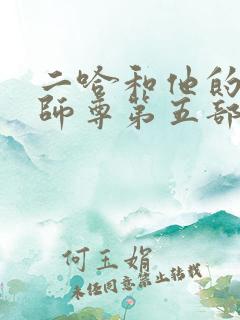 二哈和他的
師尊第五部
何玉娟
未经同意禁止转载